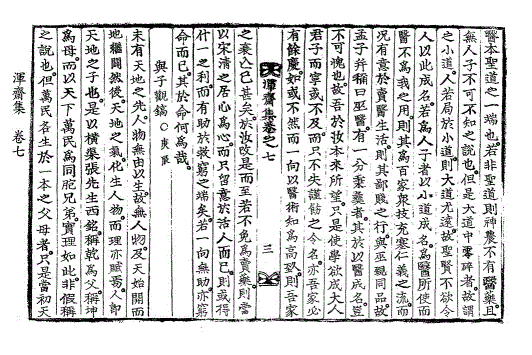 醫本聖道之一端也若非聖道則神農不有醫藥且
無人子不可不知之說也但是大道中零碎者故謂
之小道人若局於小道則大道尤遠故聖賢不欲令
人以此成名若爲人子者以小道成名爲醫所使而
醫不爲我之用則其爲百家衆技充塞仁義之流而
況有意於賣醫生活則其鄙賤之行與巫覡同品故
孟子并稱曰巫醫有一分秉彝者其於以醫成名豈
不可愧也故吾於汝本來所望只是使學欲成大人
君子而寧或不及而只不失謹勅之令名亦吾家必
有餘慶如或不然而一向以醫術和爲高致則吾家
渾齋集卷之七
三
之衰亾已甚矣於汝改是而至若不免爲賣藥則當
以宋清之居心爲心而只留意於活人而已則或得
什一之利而有助於救窮之端矣若一向無助亦窮
命而已其於命何爲哉
與子觀鎬 ○庚單
未有天地之先人物無由以生故無人物及天始開而
地繼闢然後天地之氣化生人物而理亦賦焉人卽
天地之子也是以橫渠張先生西銘稱乾爲父稱坤
爲母而以天下萬民爲同胞兄弟實理如此非假稱
之說也但萬民各生於一本之父母者只是當初天
渾齋集 卷七